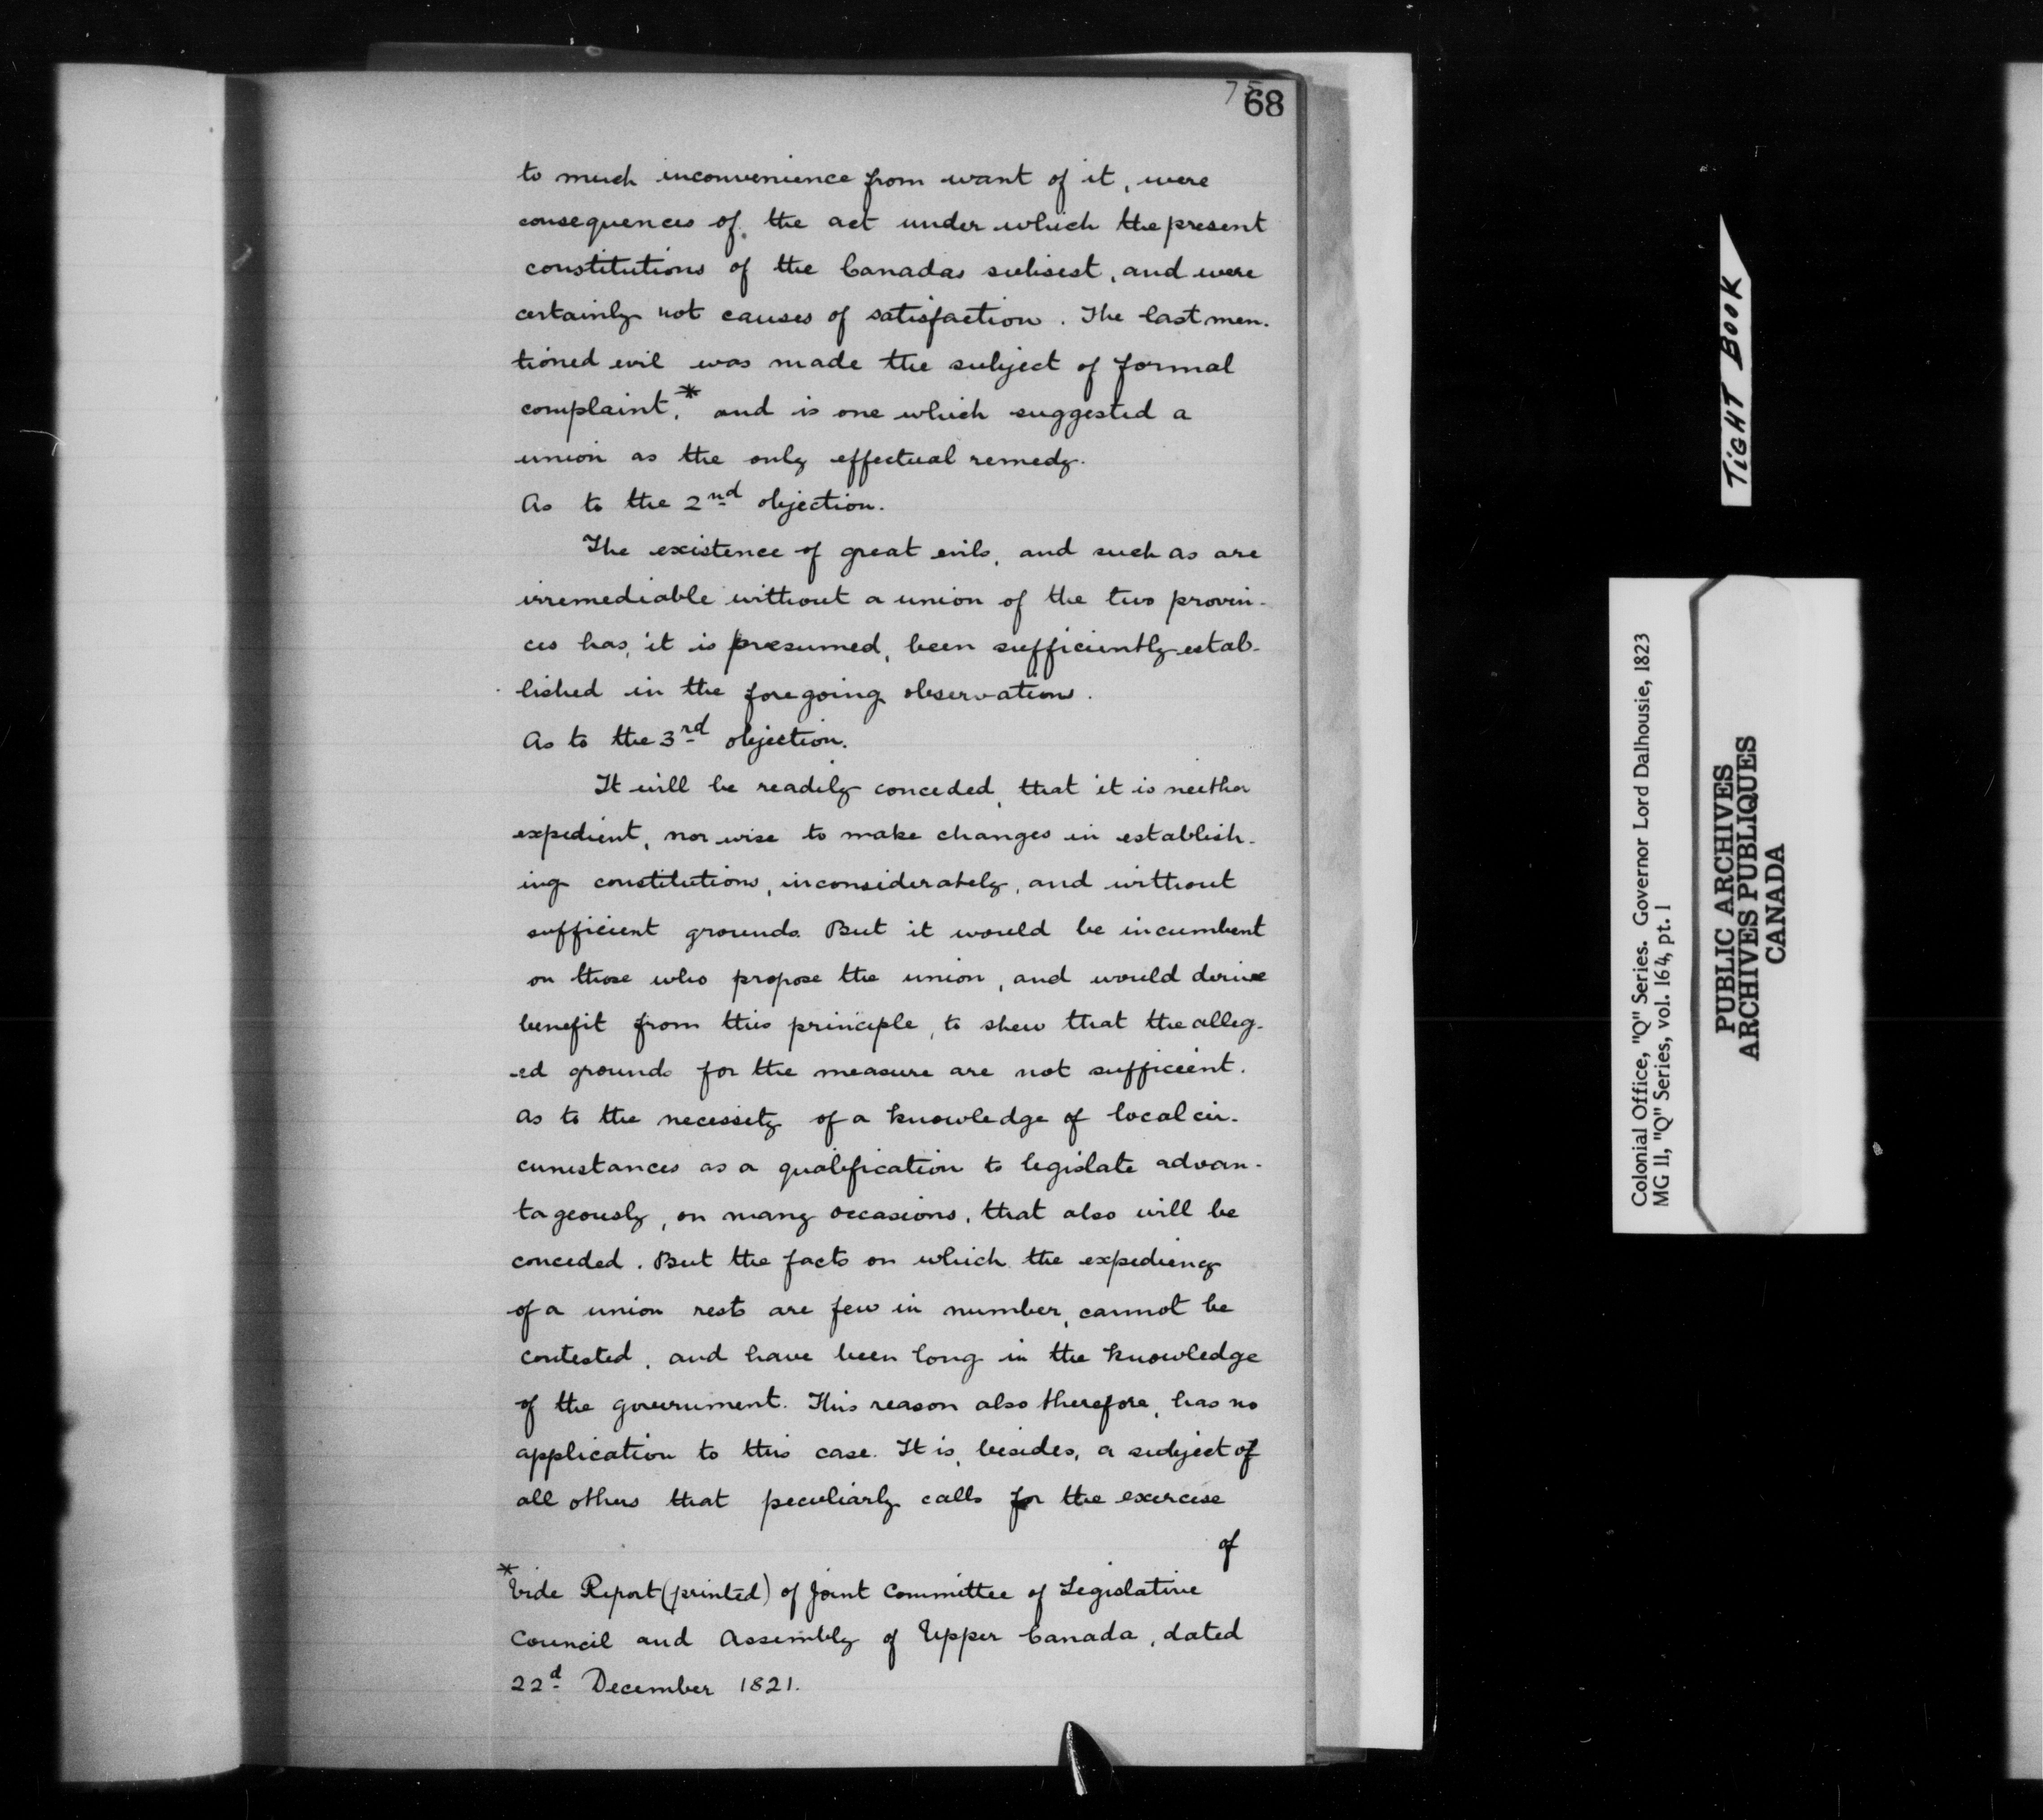 75
68
to much inconvenience from want of it, were
consequences of the act under which the present
constitutions of the Canadas subsist, and were
certainly not causes of satisfaction. The last men-
tioned evil was made the subject of formal
complaint,* and is one which suggested a
union as the only effectual remedy.
As to the 2nd objection.
The existence of great evils, and such as are
irremediable without a union of the two provin-
ces has, it is presumed, been sufficiently estab-
lished in the foregoing observations.
As to the 3rd objection.
It will be readily conceded, that it is neither
expedient, nor wise to make changes in establish-
ing constitutions, inconsiderately, and without
sufficient grounds. But it would be incumbent
on those who propose the union, and would derive
benefit from this principle, to shew that the alleg-
-ed grounds for the measure are not sufficient.
As to the necessity of a knowledge of local cir-
cumstances as a qualification to legislate advan-
tageously, on many occasions, that also will be
conceded. But the facts on which the expediency
of a union rests are few in number, cannot be
contested, and have been long in the knowledge
of the government. This reason also therefore, has no
application to this case. It is, besides, a subject of
all others that peculiarly calls for the exercise
of
*Vide Report (printed) of Joint Committee of Legislative
Council and Assembly of Upper Canada, dated
22d December 1821.
TIGHT BOOK
Colonial Office, "Q" Series. Governor Lord Dalhousie, 1823
MG 11, "Q" Series, vol. 164, pt. 1
PUBLIC ARCHIVES
ARCHIVES PUBLIQUES
CANADA